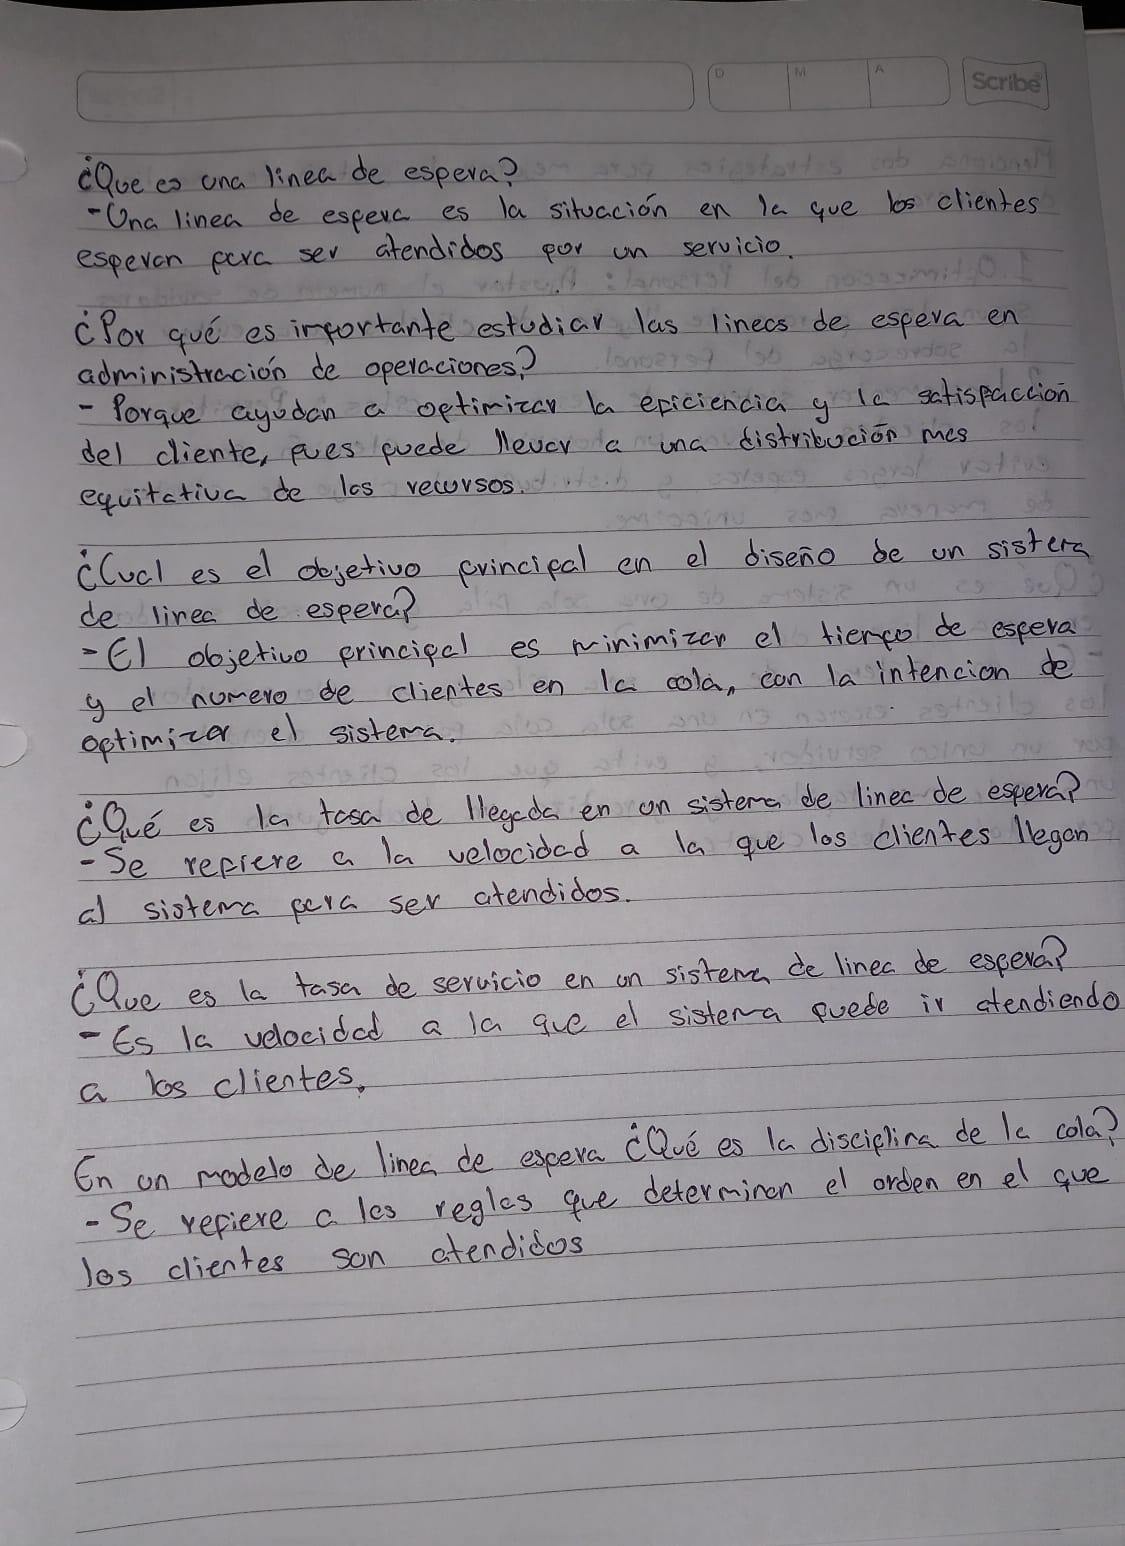 D M A Scribe
¿Que es una linea de espera?
-Una linea de espera es la situación en la que los clientes
esperan para ser atendidos por un servicio.
¿Por qué es importante estudiar las lineas de espera en
administración de operaciones?
- Porque ayudan a optimizar la eficiencia y la satisfacción
del cliente, pues puede llevar a una distribución mas
equitativa de los recursos.
¿Cual es el objetivo principal en el diseño de un sistema
de linea de espera?
- El objetivo principal es minimizar el tiempo de espera
y el numero de clientes en la cola, con la intencion de
optimizar el sistema.
¿Qué es la tasa de llegada en un sistema de linea de espera?
- Se refiere a la velocidad a la que los clientes llegan
al sistema para ser atendidos.
¿Que es la tasa de servicio en un sistema de linea de espera?
- Es la velocidad a la que el sistema puede ir atendiendo
a los clientes.
En un modelo de linea de espera ¿Qué es la disciplina de la cola?
- Se refiere a las reglas que determinan el orden en el que
los clientes son atendidos